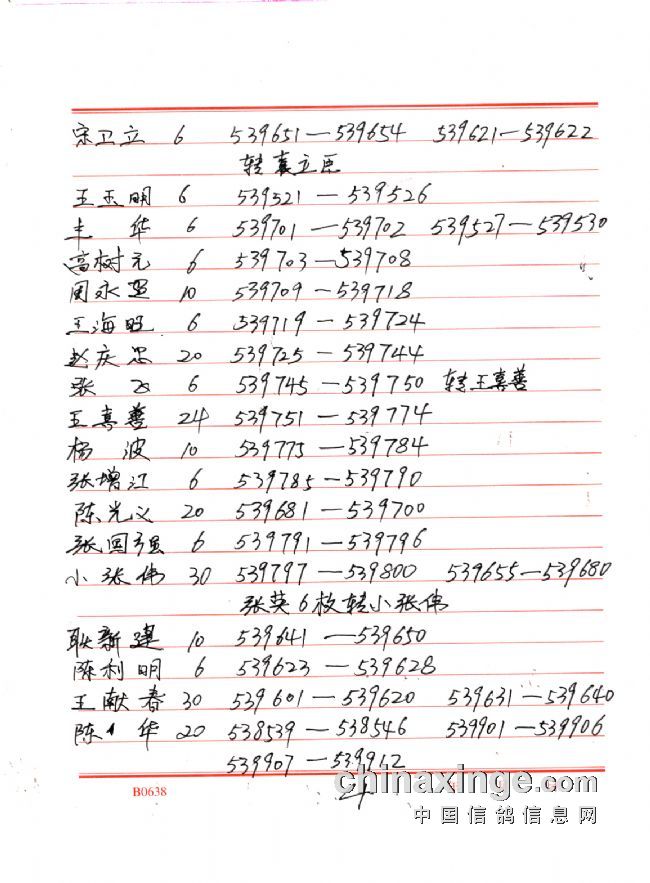 宋卫立 6 539651—539654 539621—539622
转袁立臣
王玉明 6 539521—539526
丰华 6 539701—539702 539527—539530
高树元 6 539703—539708
周永 10 539709—539718
王海 6 539719—539724
赵庆忠 20 539725—539744
张飞 6 539745—539750 转王真善
王真善 24 539751—539774
杨波 10 539775—539784
张增江 6 539785—539790
陈光义 20 539681—539700
张国强 6 539791—539796
小张伟 30 539797—539800 539655—539680
张英6枚转小张伟
耿新建 10 539641—539650
陈利明 6 539623—539628
王献春 30 539601—539620 539631—539640
陈 华 20 538539—538546 539901—539906
539907—539912
B0638 24
chinaxinge.com
中国信鸽信息网